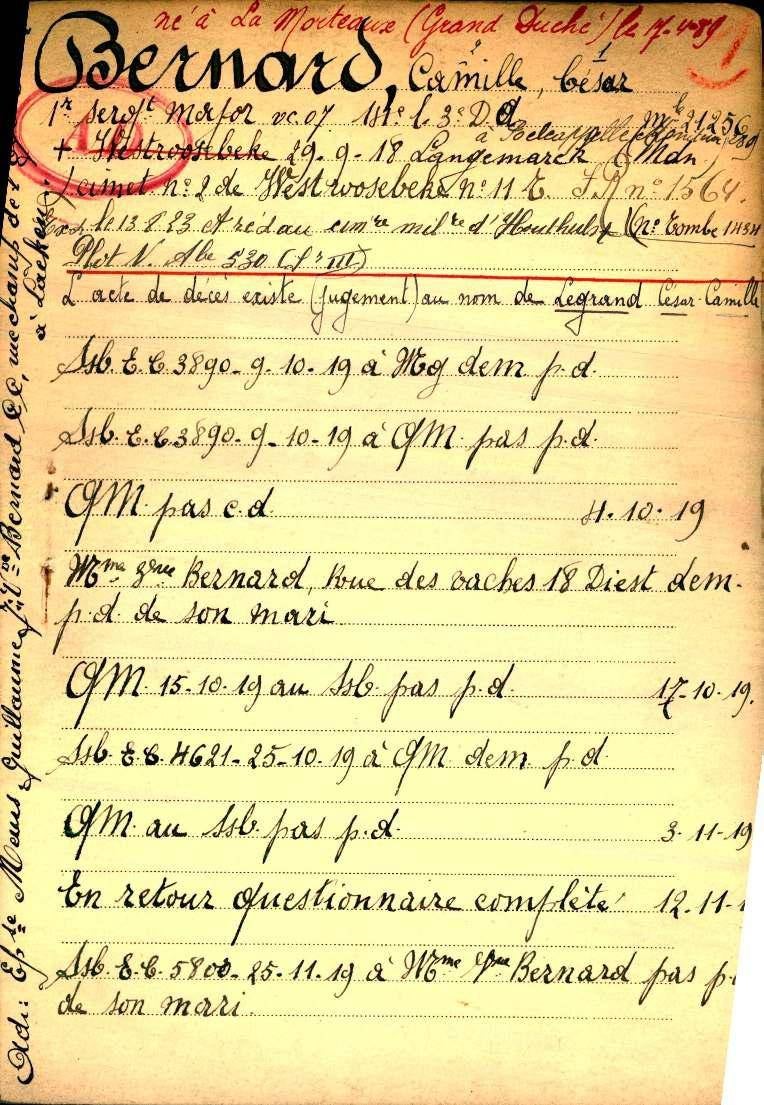 né à La Morteaux (Grand Duché) le 17-4-89
Bernard, Camille, César
1r sergt major vc. 07 14e l. 3e D d
à Belcapelle
+ Westroosbeke 29-9-18 Langemarck (Mdn)
cimet nº 2 de Westroosebeke nº 11 E. S.R nº 1564.
le 13 8 23 et réd au cimre milre d'Houthulst (Nº Tombe 1434
Plot V. Abe 530 (Ss III)
L'acte de décès existe (jugement) au nom de Legrand César-Camille
Ssb. E.C. 3890- 9-10-19 à Mg dem p.d.
Ssb. E.C. 3890- 9-10-19 à QM pas p.d.
QM pas c.d. 4-10-19
Mme Bernard, Rue des vaches 18 Diest dem.
p.d. de son mari
QM. 15-10-19 au Ssb. pas p.d. 17-10-19.
Ssb. E.C. 4621-25-10-19 à QM dem p.d
QM. au Ssb. pas p.d. 3-11-19
En retour questionnaire complété 12-11-
Ssb. E.C. 5800- 25-11-19 à Mme Vve Bernard pas p.
de son mari.
Adr: Ep se Maus Guillaume, Vve Bernard CC, rue champ de
à Laeken